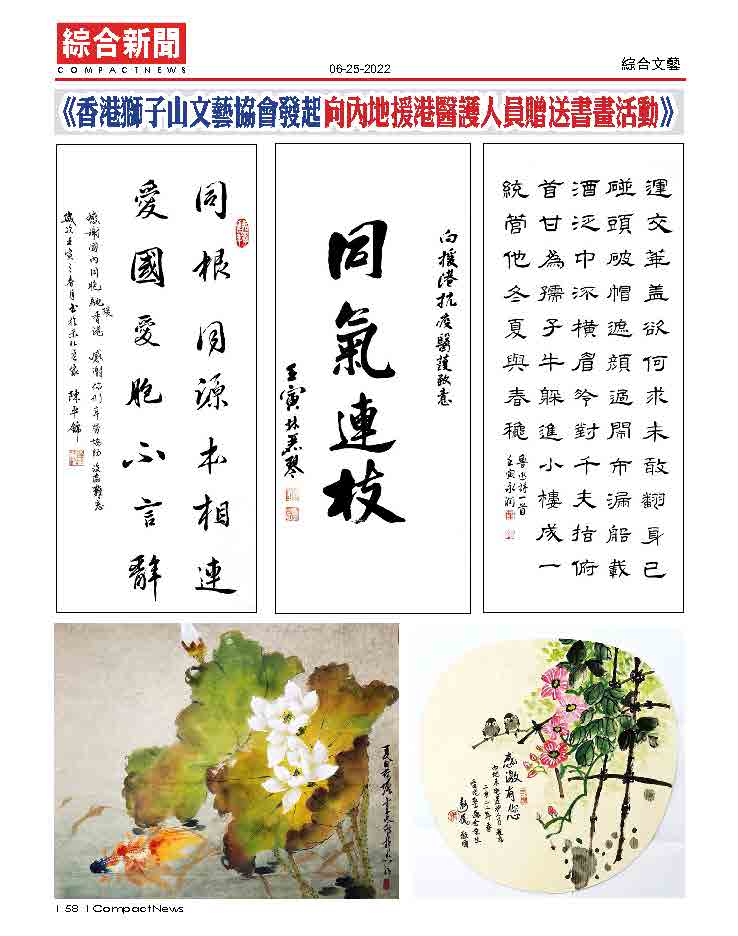 綜合新聞
COMPACTNEWS
06-25-2022
綜合文藝
《香港獅子山文藝協會發起向內地援港醫護人員贈送書畫活動》
同根同源本相連
愛國愛胞不言辭
感謝國內同胞馳援香港 感謝你們辛勞協助
歲次壬寅之春月書於
向援港抗疫醫護致意
同氣連枝
壬寅林
運交華盖欲何求未敢翻身已
碰頭破帽遮顏過鬧市漏船載
酒泛中流橫眉冷對千夫指俯
首甘為孺子牛躲進小樓成一
統管他冬夏與春穐
魯迅詩一首
壬寅
感激有您
二零二二年春
| 58 | CompactNews